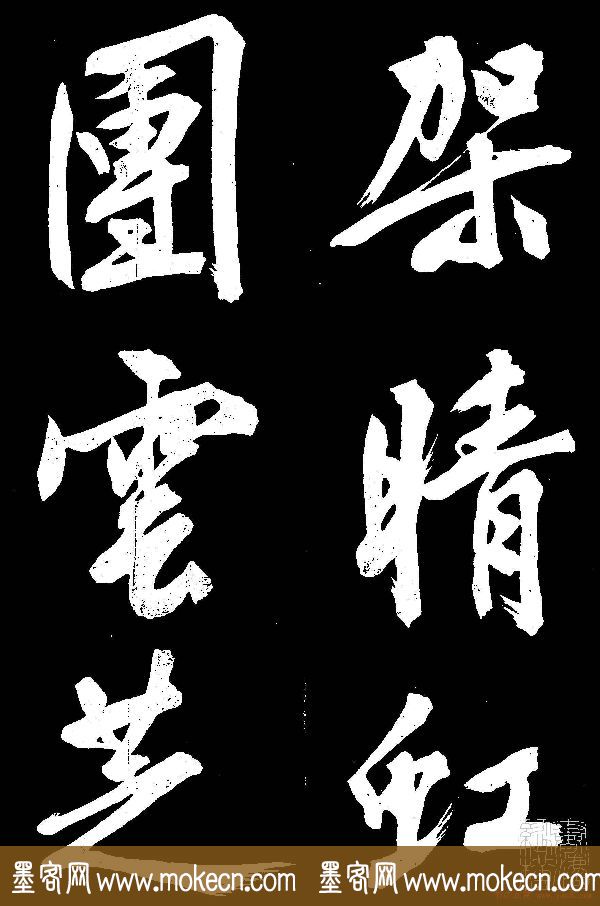 架晴虹
團雲
墨客网 www.mokecn.com 墨客网 www.mokecn.com